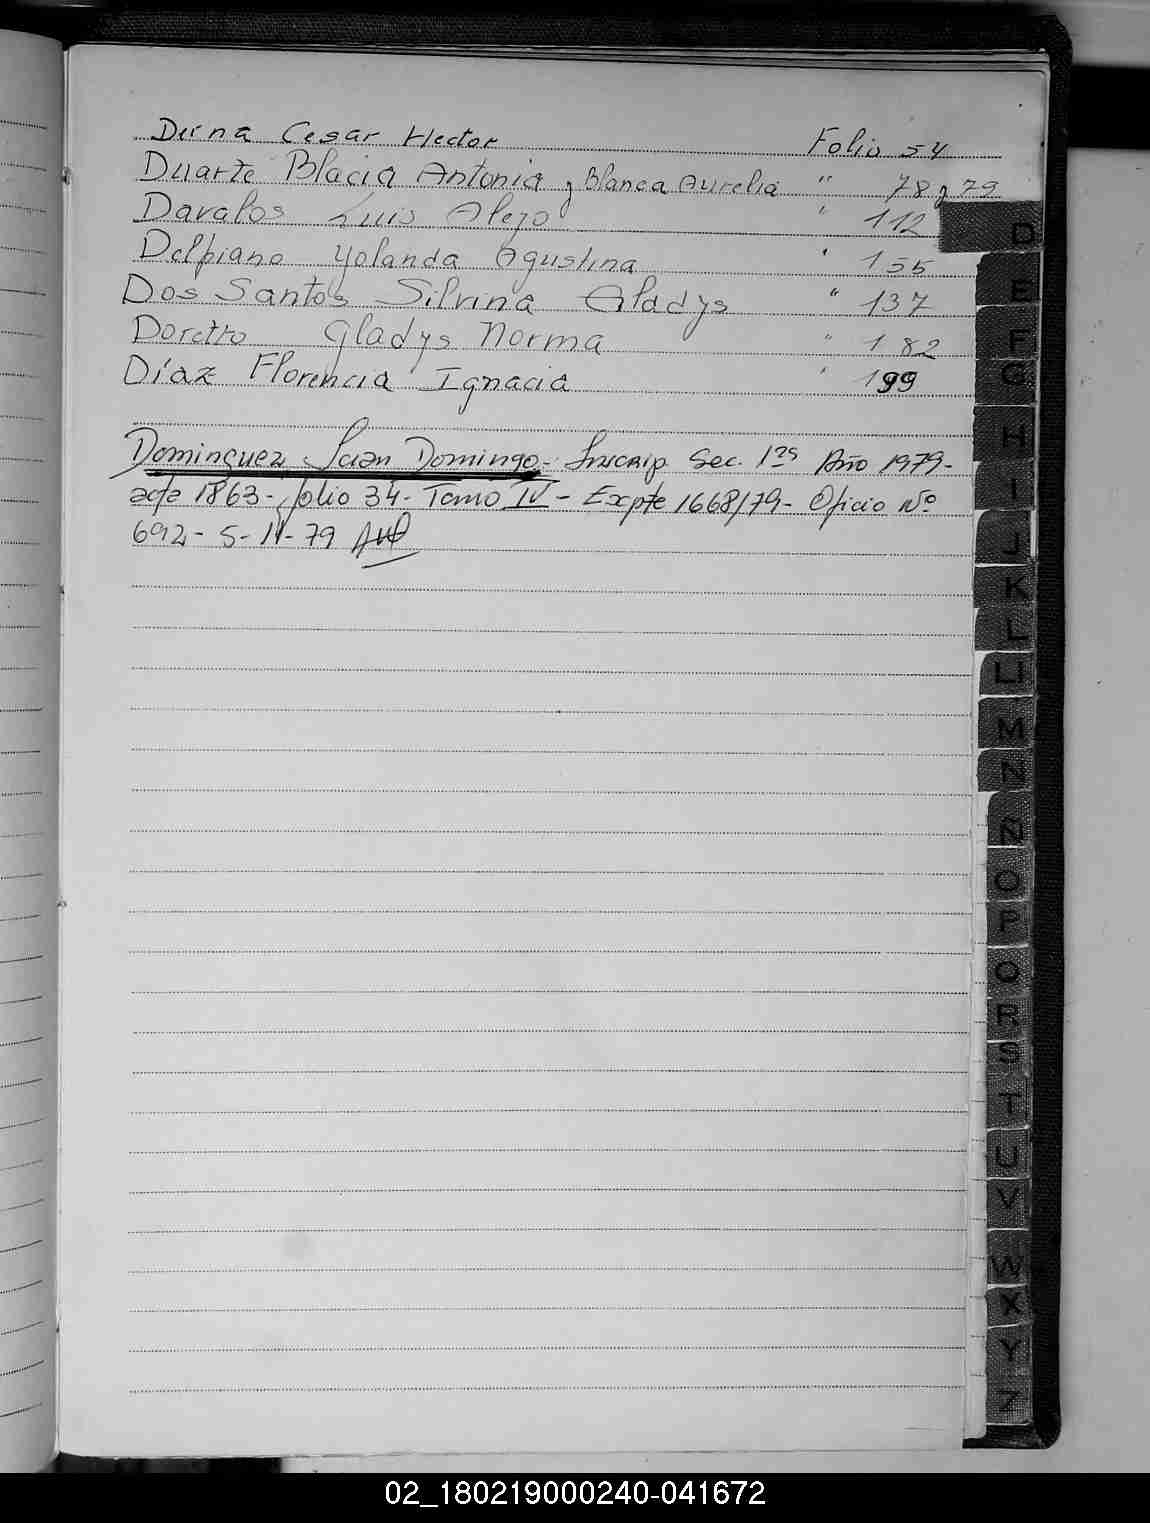 Deina Cesar Hector Folio 54
Duarte Blacia Antonia y Blanca Aurelia " 78 y 79
Davalos Luis Alejo " 112
Delpiano Yolanda Agustina " 155
Dos Santos Silvina Gladys " 137
Doretto Gladys Norma " 182
Díaz Florencia Ignacia " 199
Dominguez Juan Domingo- Inscrip Sec. 1ra Año 1979-
acta 1863- folio 34- Tomo IV - Expte 1668/79- Oficio Nº
692- 5-11-79
D
E
F
G
H
I
J
K
L
LL
M
N
Ñ
O
P
Q
R
S
T
U
V
W
X
Y
Z
02_180219000240-041672